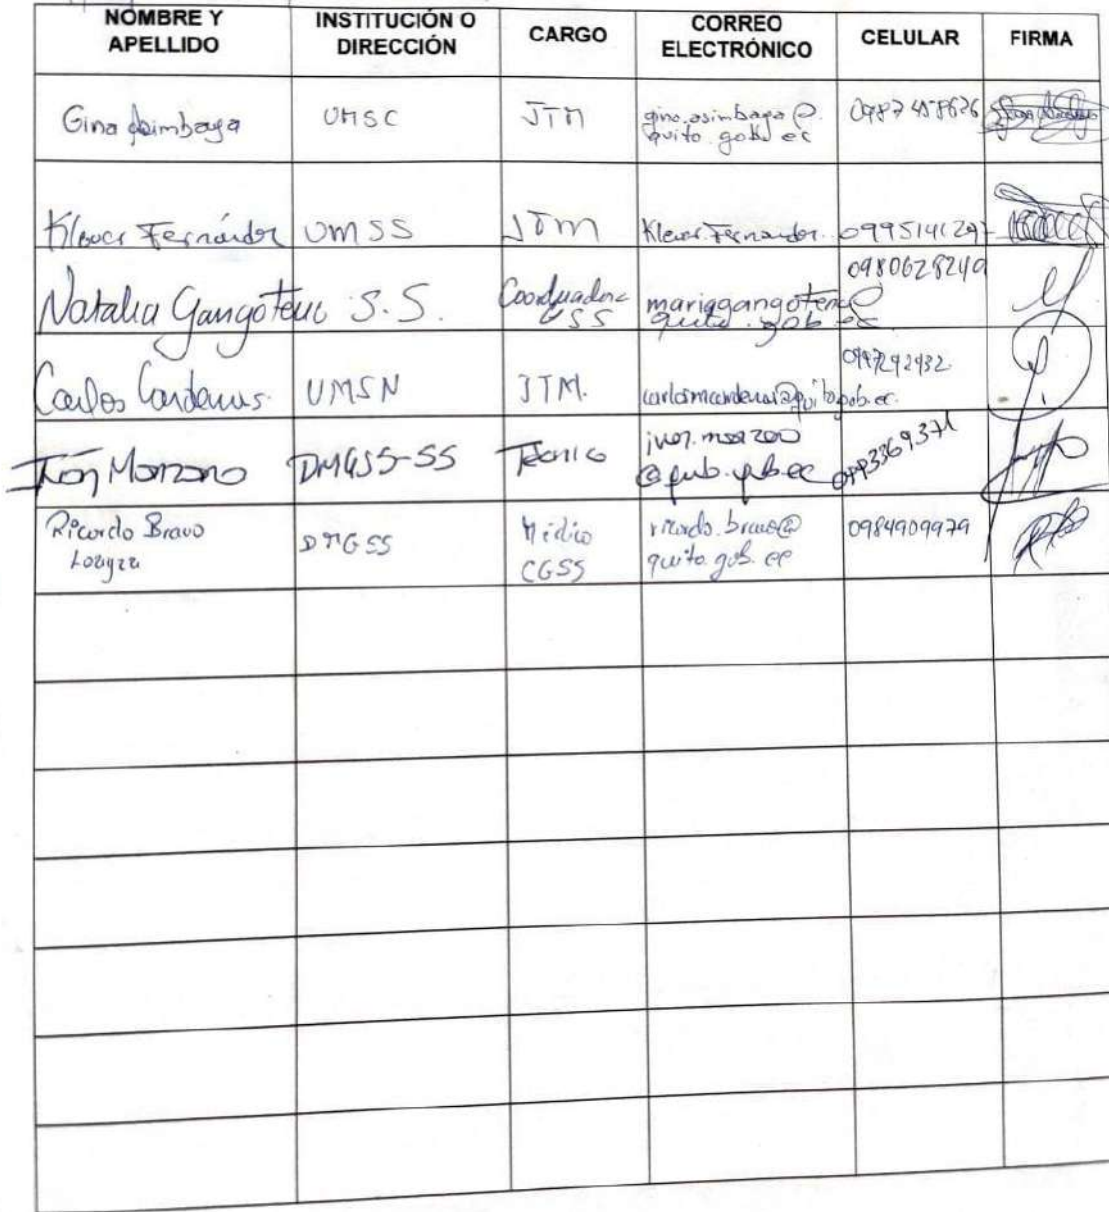 NOMBRE Y APELLIDO
INSTITUCIÓN O DIRECCIÓN
CARGO
CORREO ELECTRÓNICO
CELULAR
FIRMA
Gina Asimbaya
UMSC
JTM
gina.asimbaya@
quito.gob.ec
Klever Fernández
UMSS
JTM
Klever.Fernandez
0995141297
Natalia Gangotena
S.S.
Coordinadora
SS
mariagangotena@
quito.gob.ec
0980628240
Carlos Cardenas
UMSN
JTM.
carlosmcardenas@quito.gob.ec.
0997292932
Iván Manzano
DMGSS-SS
Técnico
ivan.manzano
0993369371
Ricardo Bravo
Loayza
DMGSS
Médico
CGSS
ricardo.bravo@
quito.gob.ec
0984909979